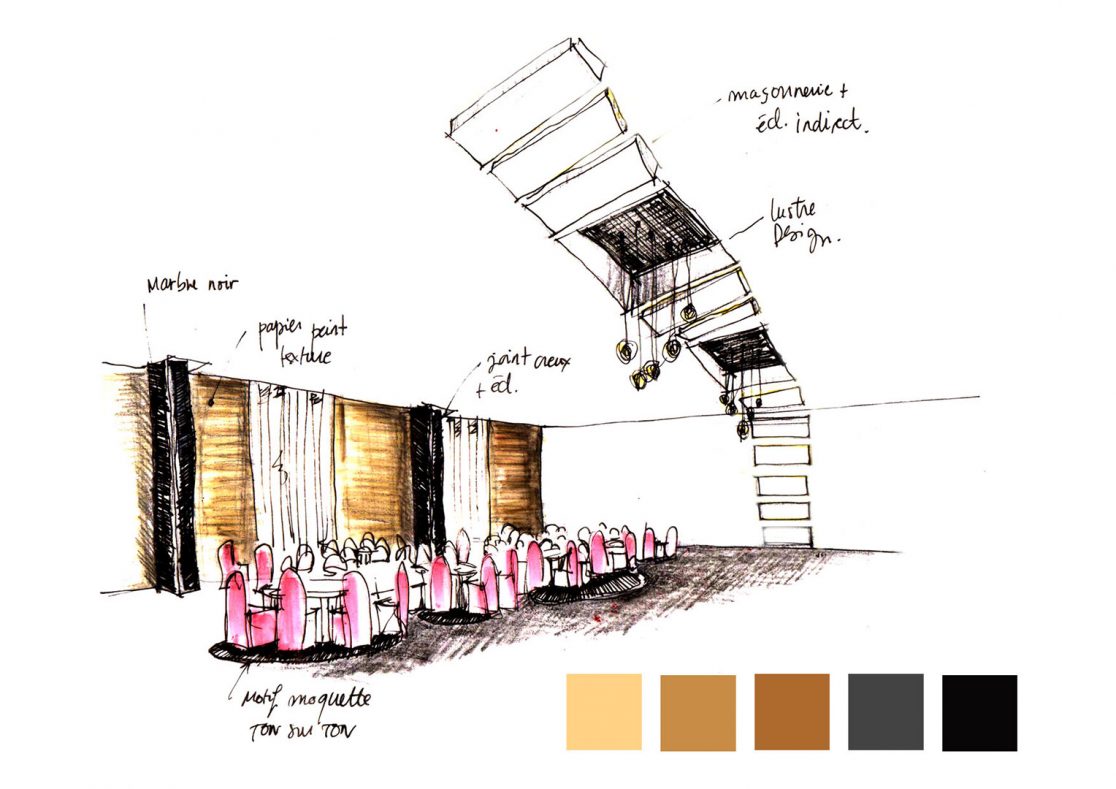 maçonnerie +
écl. indirect.
lustre
Design.
Marbre noir
papier peint
texture
joint creux
+ écl.
Motif moquette
TON sur TON